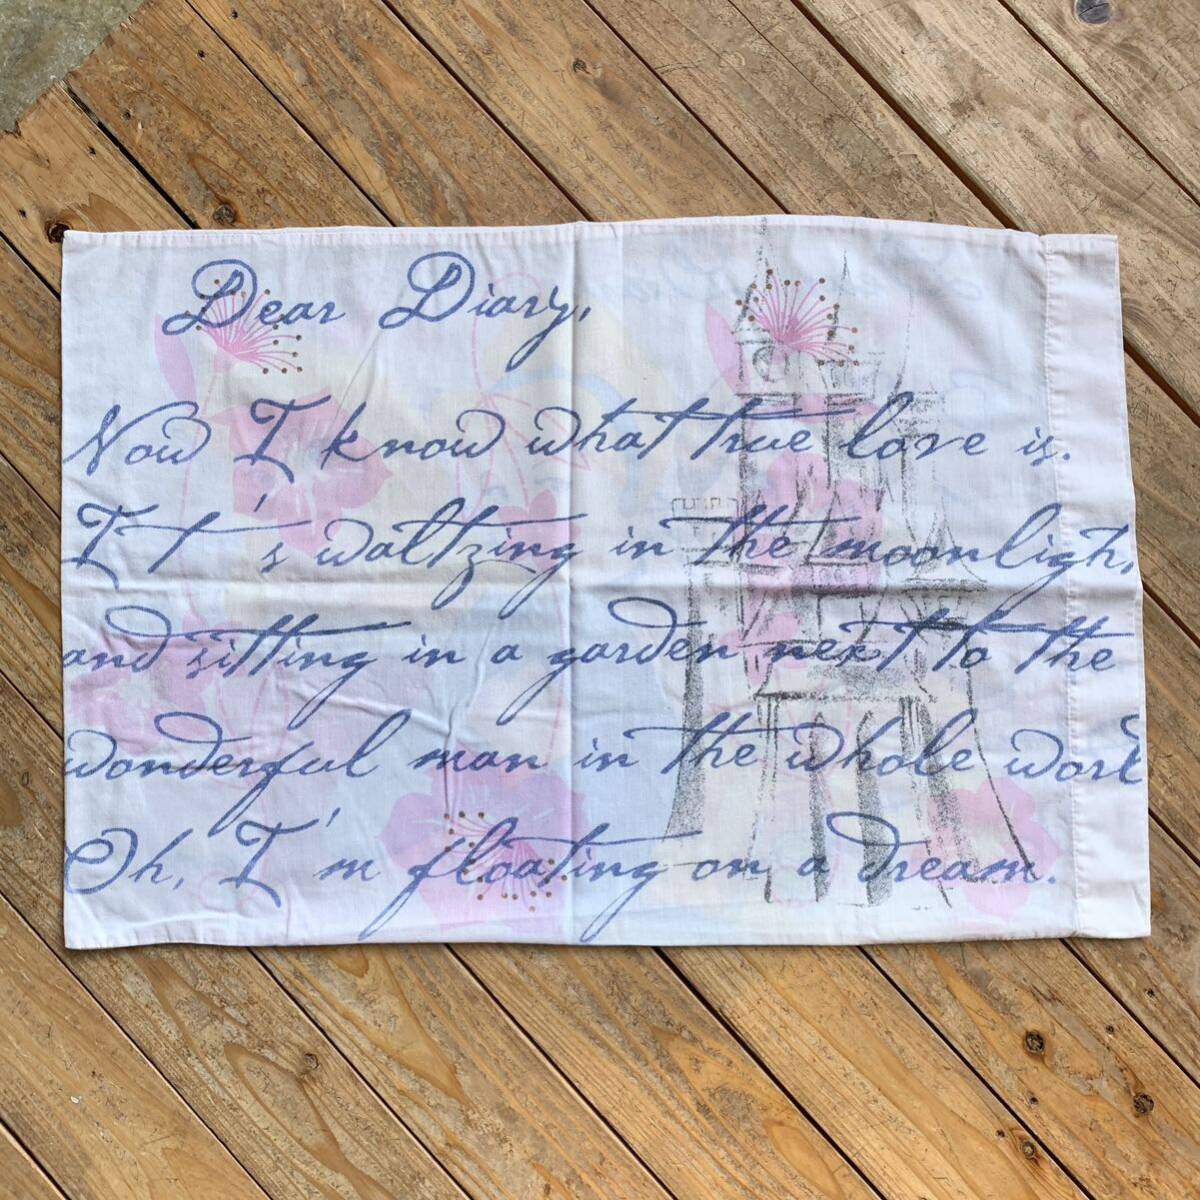 Dear Diary,
Now I know what true love is.
It's waltzing in the moonligh,
and sitting in a garden next to the
wonderful man in the whole worl
Oh, I'm floating on a dream.